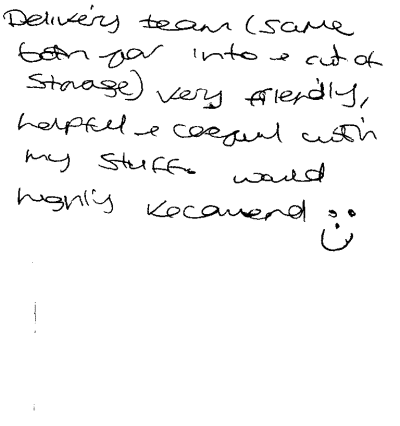 Delivery team (same
both for into & out of
storage) very friendly,
helpful & careful with
my stuff. would
highly recomend